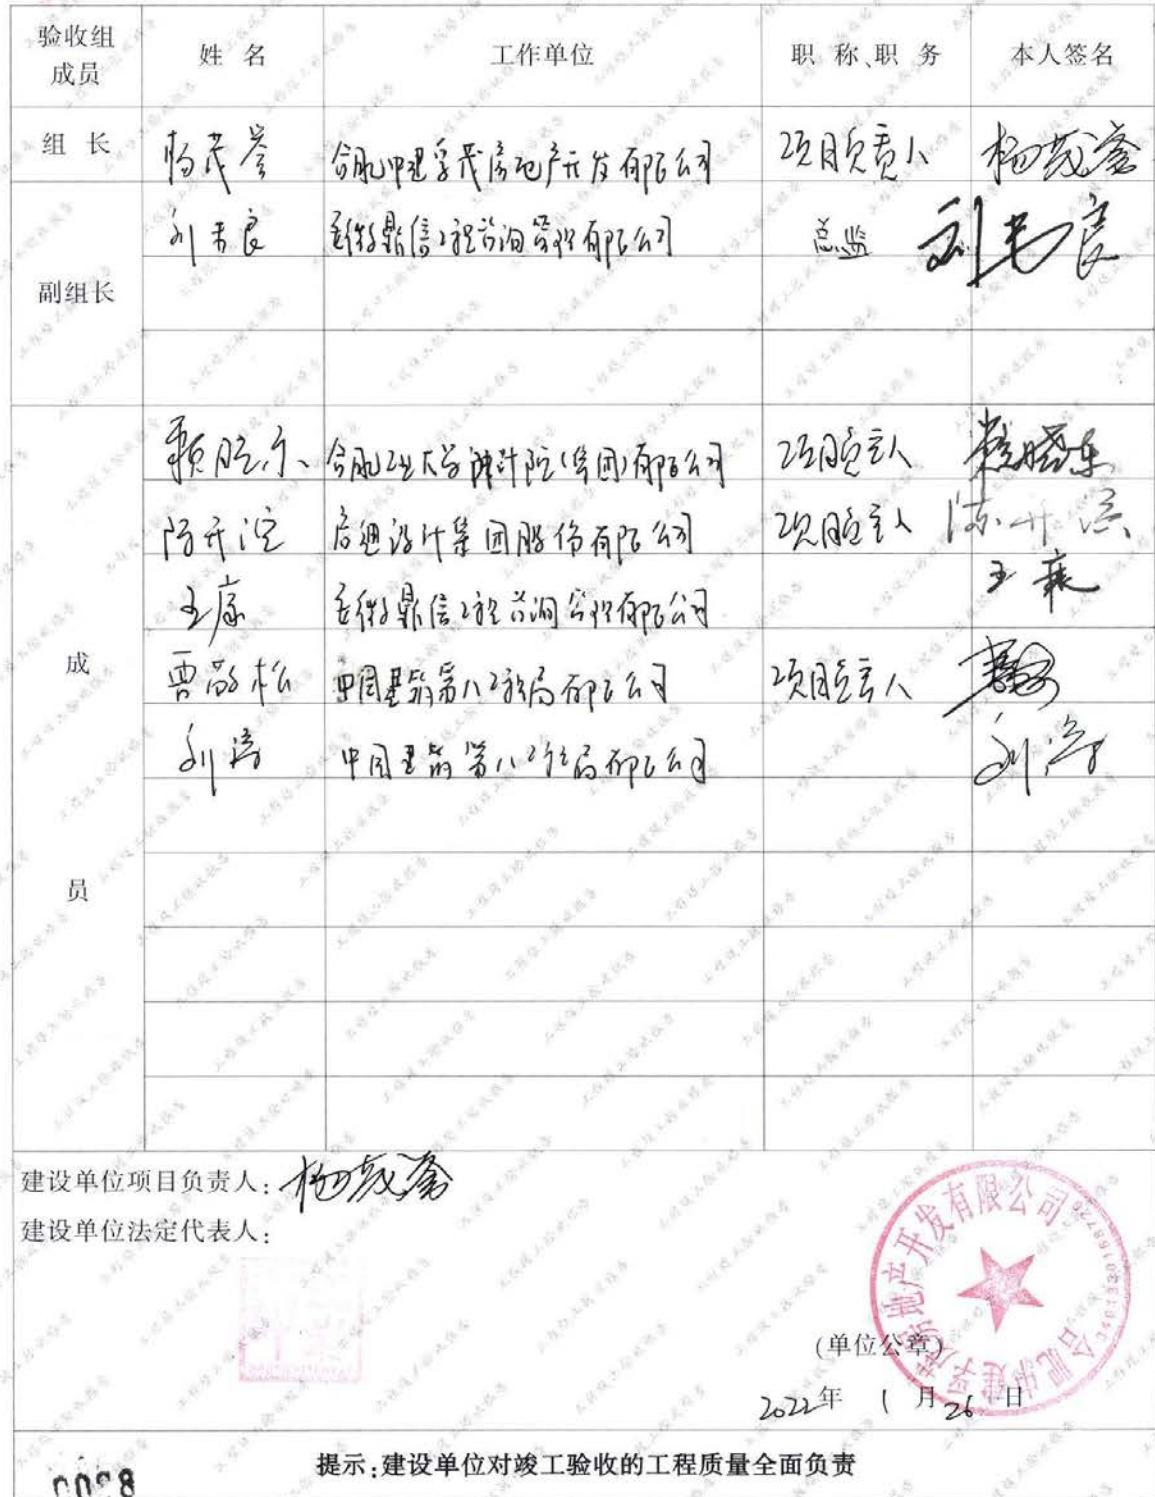 验收组成员 姓 名 工作单位 职 称、职 务 本人签名
组 长 杨茂鎣 合肥中建孚茂房地产开发有限公司 项目负责人 杨茂鎣
副组长 刘书良 安徽鼎信工程咨询管理有限公司 总监
合肥工业大学设计院(集团)有限公司 项目负责人
启迪设计集团股份有限公司 项目负责人
王康 安徽鼎信工程咨询管理有限公司 王康
成 贾敬松 中国建筑第八工程局有限公司 项目负责人
刘涛 中国建筑第八工程局有限公司 刘涛
员
建设单位项目负责人:杨茂鎣
建设单位法定代表人:
合肥中建孚茂房地产开发有限公司
(单位公章)
2022年 1 月 26 日
提示:建设单位对竣工验收的工程质量全面负责
0028